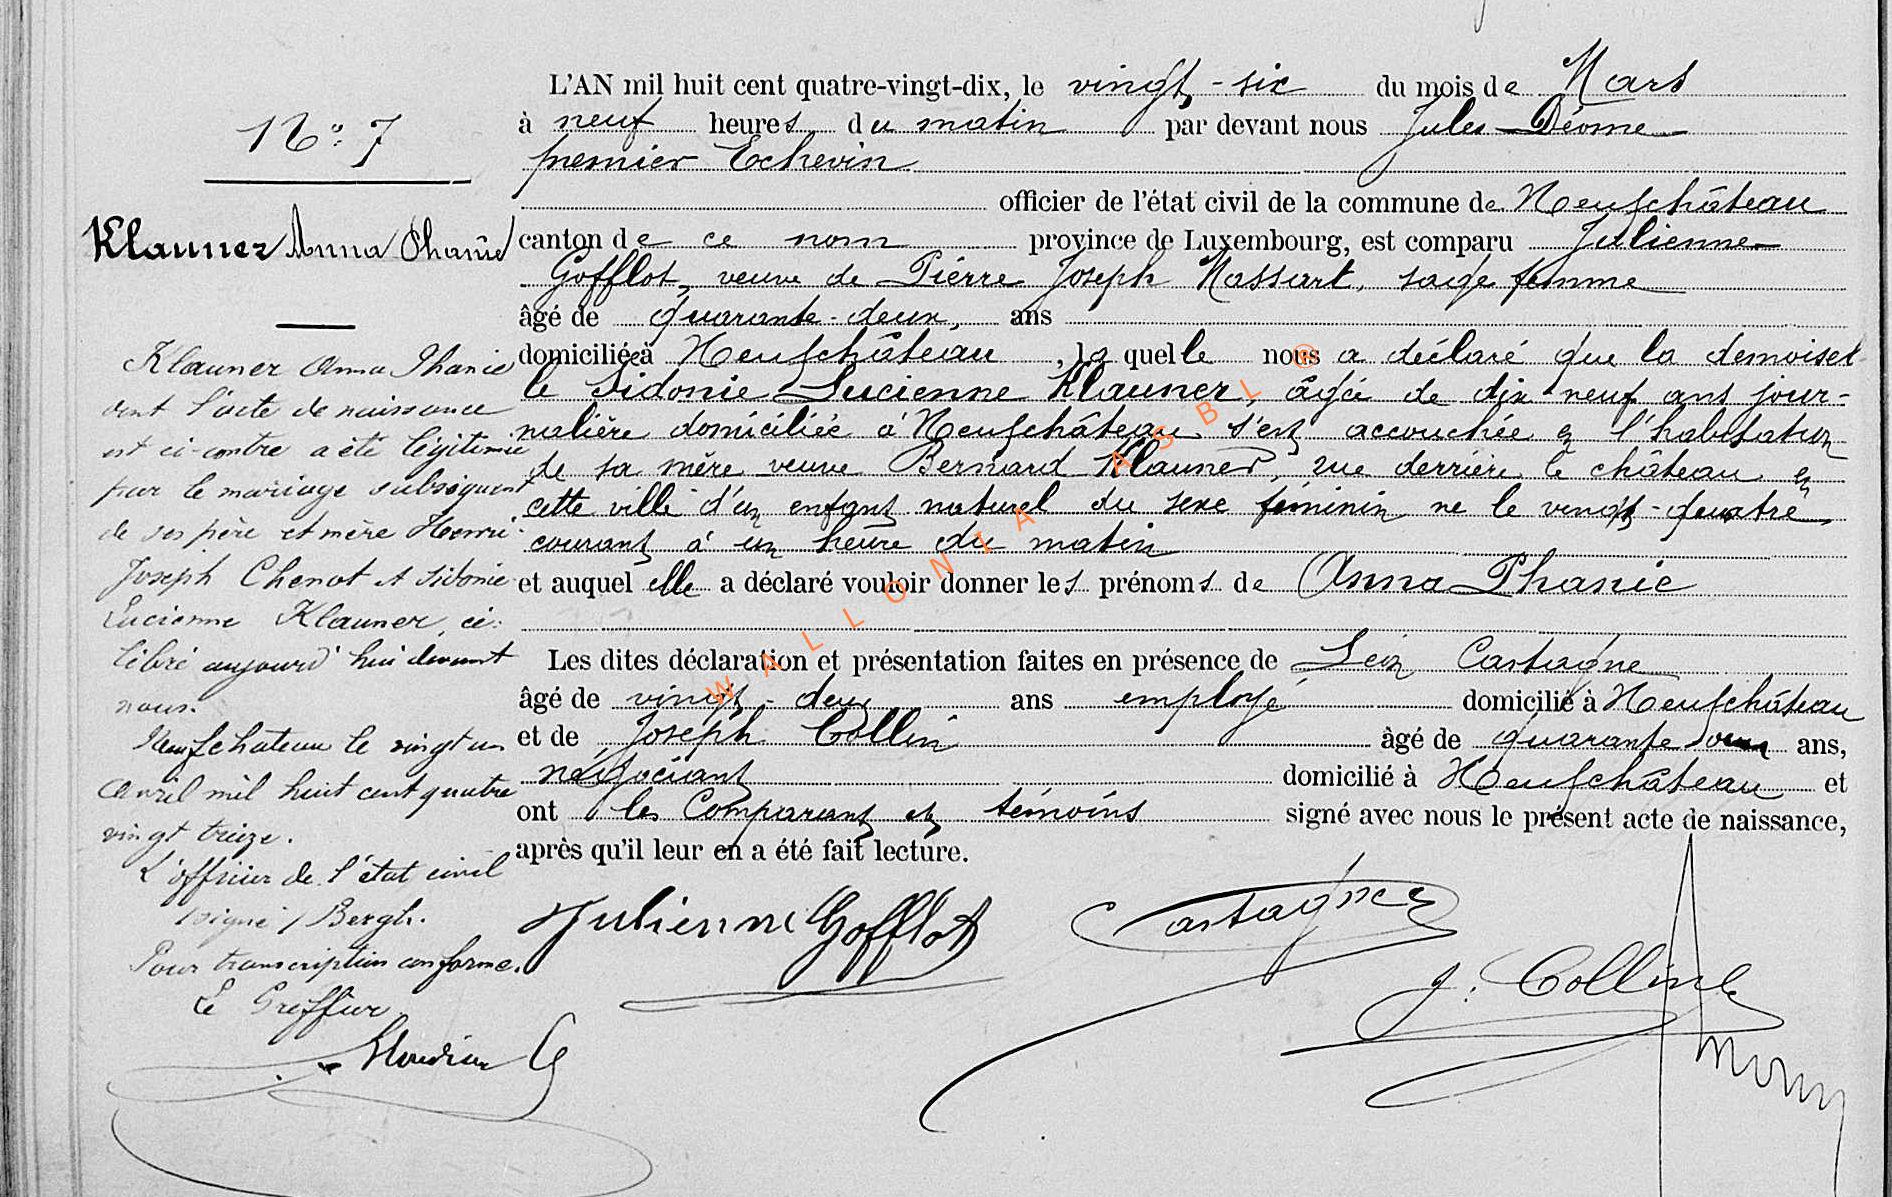 N° 7
Klauner Anna Phanie
Klauner Anna Phanie
dont l'acte de naissance
est ci-contre a été légitimée
par le mariage subséquent
de ses père et mère Henri
Joseph Chenot et Sidonie
Lucienne Klauner, cé-
lébré aujourd'hui devant
nous.
Neufchateau le vingt un
avril mil huit cent quatre
vingt treize.
L'officier de l'état civil
/signé/ Bergh.
Pour transcription conforme.
Le Greffier
L'AN mil huit cent quatre-vingt-dix, le vingt-six du mois de Mars
à neuf heures du matin par devant nous Jules Déome
premier Echevin
officier de l'état civil de la commune de Neufchâteau
canton de ce nom province de Luxembourg, est comparu Julienne
Gofflot, veuve de Pierre Joseph Massart, sage femme
âgé de quarante-deux, ans
domiciliée à Neufchâteau, laquelle nous a déclaré que la demoisel-
le Sidonie Lucienne Klauner, âgée de dix neuf ans jour-
nalière domiciliée à Neufchâteau s'est accouchée en l'habitation
de sa mère veuve Bernard Klauner, rue derrière le château en
cette ville d'un enfant naturel du sexe féminin né le vingt-quatre
courant à un heure du matin
et auquel elle a déclaré vouloir donner les prénoms de Anna Phanie
Les dites déclaration et présentation faites en présence de Léon Castagne
âgé de vingt-deux ans employé domicilié à Neufchâteau
et de Joseph Collin âgé de quarante ans,
négociant domicilié à Neufchâteau et
ont les Comparant et témoins signé avec nous le présent acte de naissance,
après qu'il leur en a été fait lecture.
Julienne Gofflot
Castagne
J. Collin
WALLONIA ASBL ®